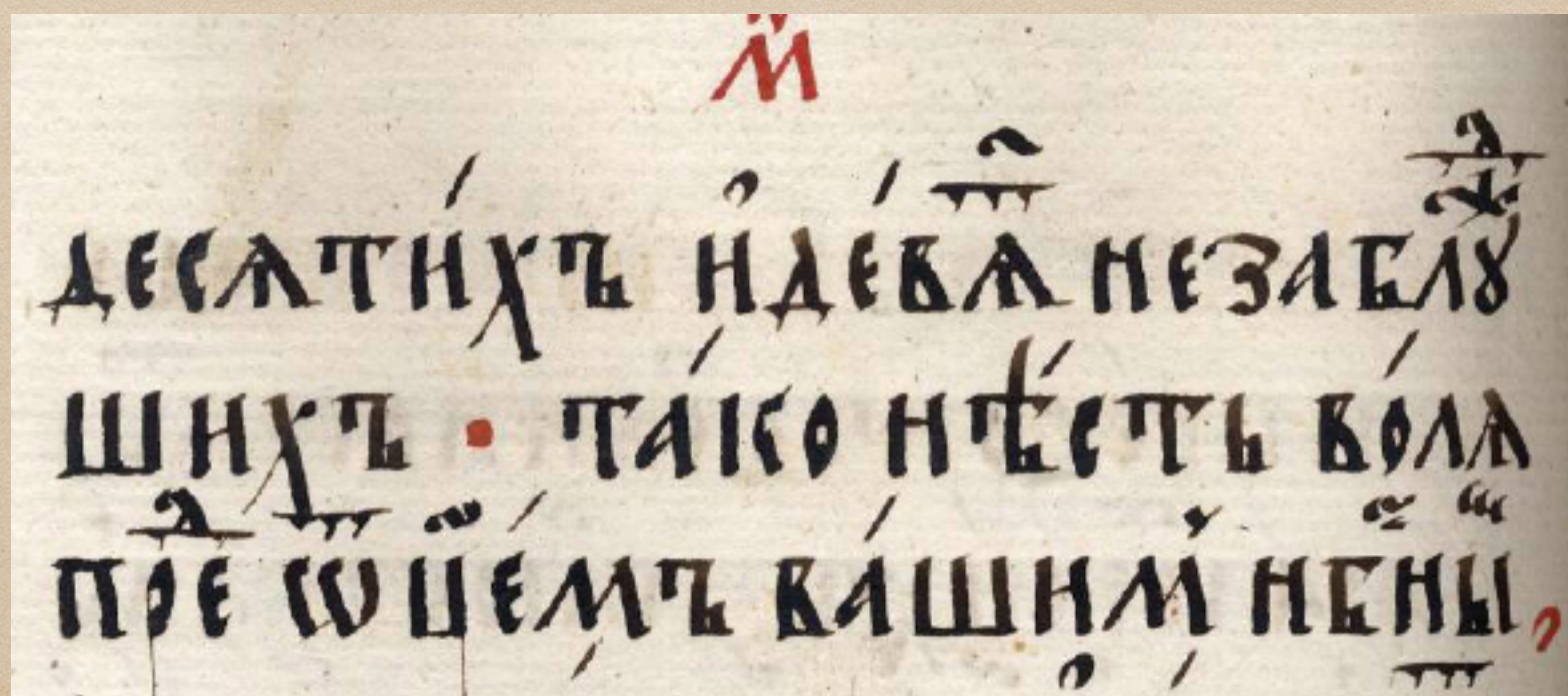 м҃
десѧти́хъ и҆де́вѧⷮ҇ незаблꙋⷤⷣ
шихъ · та́ко нѣ́сть во́лѧ
преⷣ ѿц҃е́мъ ва́шим нб҃ныⷨ,